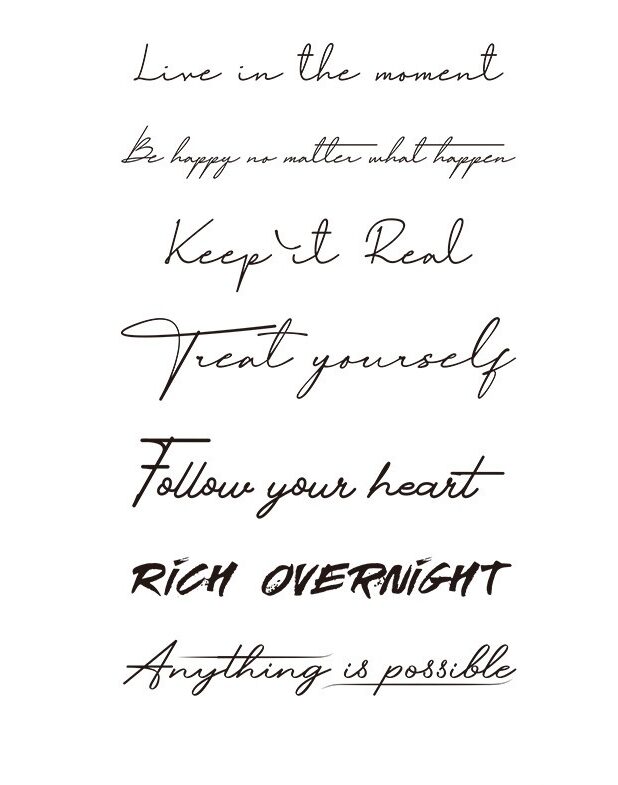 Live in the moment
Be happy no matter what happen
Keep it Real
Treat yourself
Follow your heart
RiCH OVERNiGHT
Anything is possible